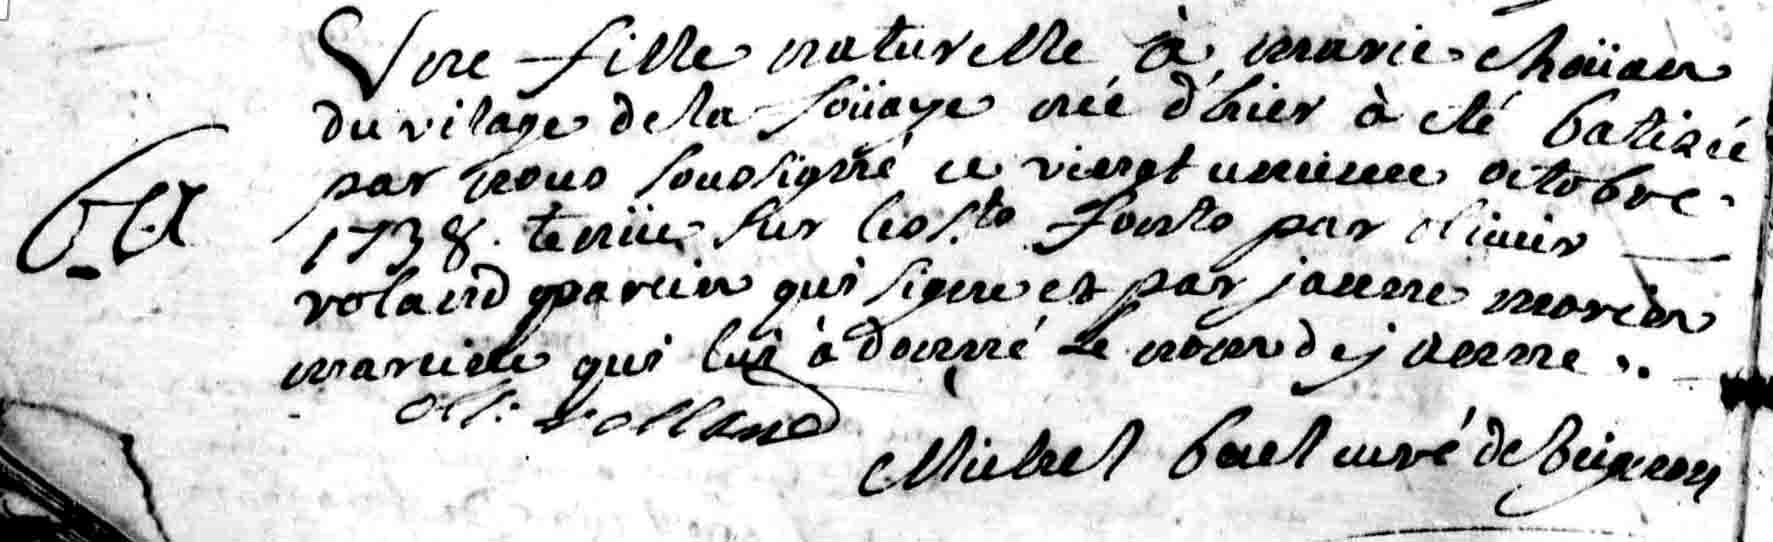 Une fille naturelle à marie choüan
du vilage de la soüaye née d'hier à eté batisée
par nous soussigné ce vingt unieme octobre
1738. tenüe sur les sts fonts par olivier
roland parein qui signe et par jaenne morein
mareine qui lui à donné le nom de jaenne ..
oli: rolland
Michel curé de Beignon